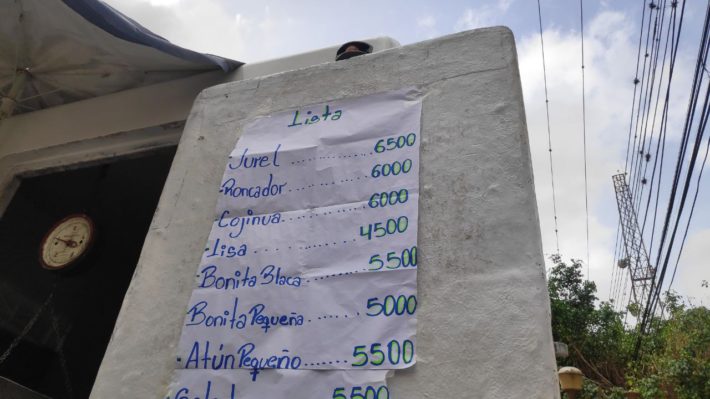 Lista
-Jurel ............. 6500
-Roncador .......... 6000
-Cojinua ........... 6000
-Lisa .............. 4500
-Bonita Blaca ...... 5500
Bonita Pequeña ...... 5000
-Atún Pequeño ....... 5500
5500